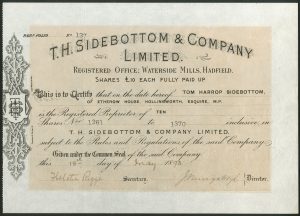 No 137
T.H. SIDEBOTTOM & COMPANY
LIMITED.
REGISTERED OFFICE; WATERSIDE MILLS, HADFIELD.
SHARES £10 EACH FULLY PAID UP
This is to Certify that on the date hereof TOM HARROP SIDEBOTTOM,
OF ETHEROW HOUSE HOLLINGWORTH, ESQUIRE, M.P.
is the Registered Proprietor of TEN
Shares Nos 1361 to 1370 inclusive, in
T. H. SIDEBOTTOM & COMPANY LIMITED,
subject to the Rules and Regulations of the said Company.
Given under the Common Seal of the said Company
this day of
Secretary. Director.